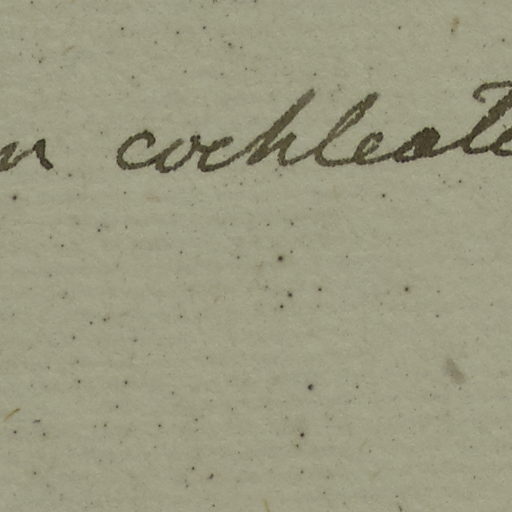 n cochleate